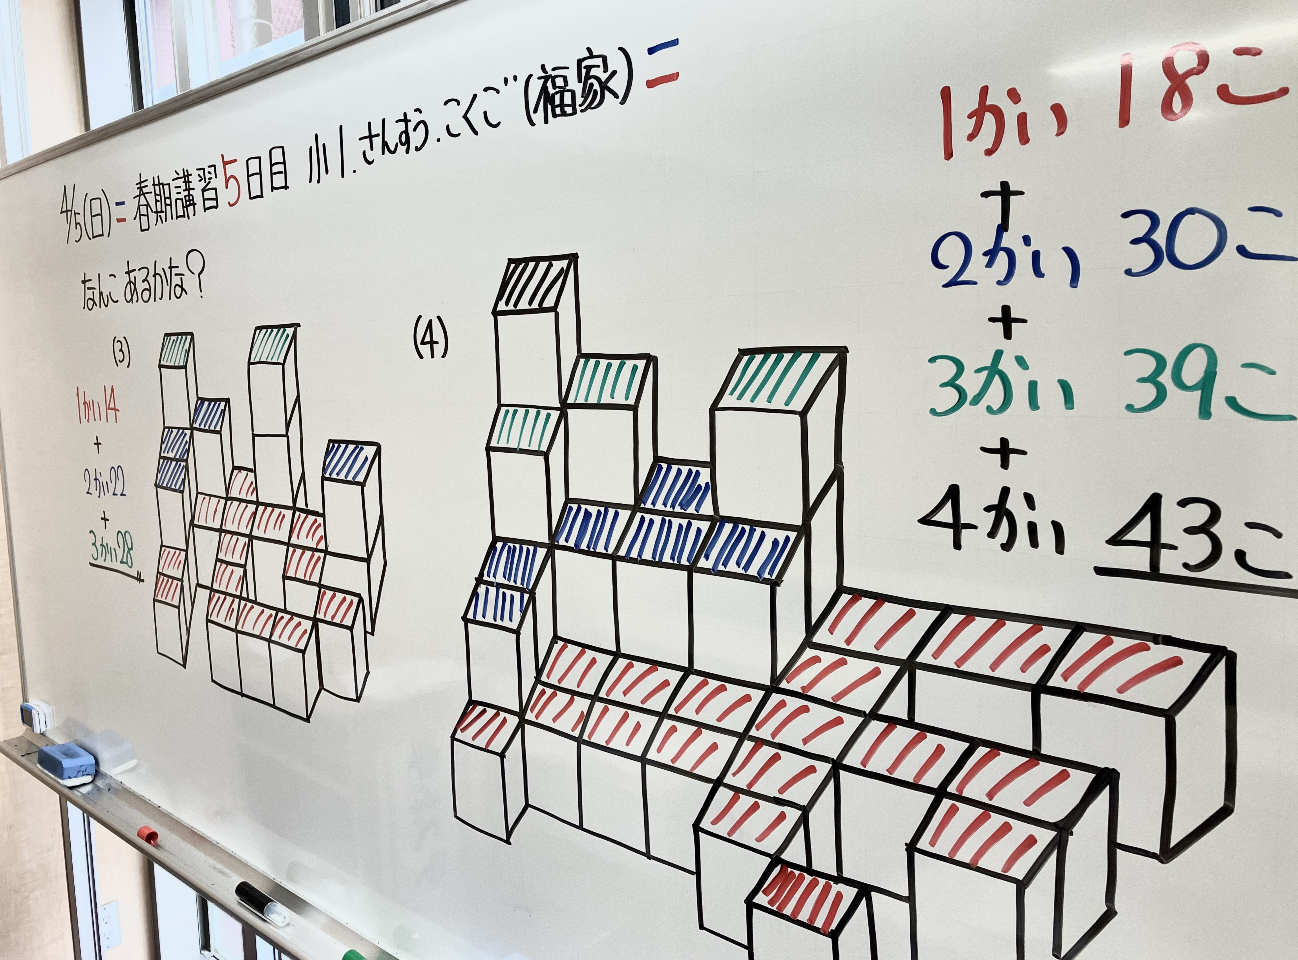 4/5(日)=春期講習5日目 小1.さんすう.こくご(福家)=
なんこあるかな?
(3)
1かい14
+
2かい22
+
3かい28
(4)
1かい 18こ
+
2かい 30こ
+
3かい 39こ
+
4かい 43こ